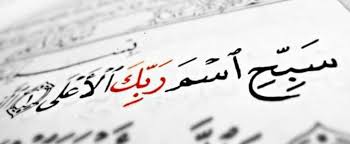 سَبِّحِ ٱسْمَ رَبِّكَ ٱلْأَعْلَى ١